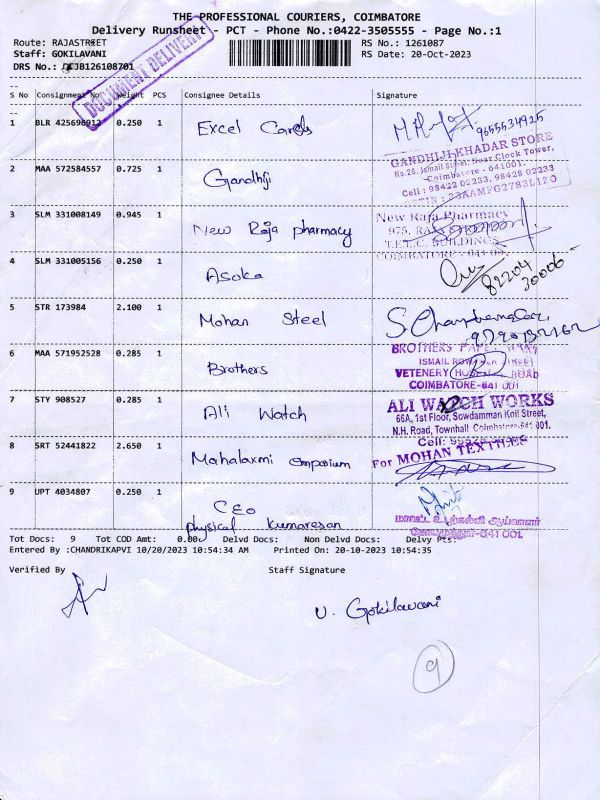 THE PROFESSIONAL COURIERS, COIMBATORE
Delivery Runsheet - PCT - Phone No.:0422-3505555 - Page No.:1
Route: RAJASTREET
Staff: GOKILAVANI
RS No.: 1261087
RS Date: 20-Oct-2023
DRS No.:
DOCUMENT DELIVERY
S No Consignment No. Weight PCS Consignee Details Signature
1 BLR 425696912 0.250 1 Excel Cards
9655534925
GANDHIJI KHADAR STORE
No.26, Ismail Street, Near Clock Tower,
Coimbatore - 641001.
Cell : 98422 02233, 98428 02233
2 MAA 572584557 0.725 1 Gandhiji
3 SLM 331008149 0.945 1 New Raja pharmacy
New Raja Pharmacy
975, RAJA
T.E.L.C. BUILDINGS
COIMBATORE - 641 001
4 SLM 331005156 0.250 1 Asoka
82204
30006
5 STR 173984 2.100 1 Mohan Steel
6 MAA 571952528 0.285 1 Brothers
BROTHERS
ISMAIL
VETENERY ROAD
COIMBATORE-641 001
7 STY 908527 0.285 1 Ali Watch
ALI WATCH WORKS
66A, 1st Floor, Sowdamman Koil Street,
N.H. Road, Townhall Coimbatore-641 001.
Cell:
8 SRT 52441822 2.650 1 Mahalaxmi Emporium
For MOHAN TEXTILES
9 UPT 4034807 0.250 1 CEO
Physical Kumaresan
மாவட்ட உடற்கல்வி ஆய்வாளர்
கோயமுத்தூர்-641 001.
Tot Docs: 9 Tot COD Amt: 0.00 Delvd Docs: Non Delvd Docs: Delvy Pts:
Entered By :CHANDRIKAPVI 10/20/2023 10:54:34 AM Printed On: 20-10-2023 10:54:35
Verified By Staff Signature
V. Gokilavani
9